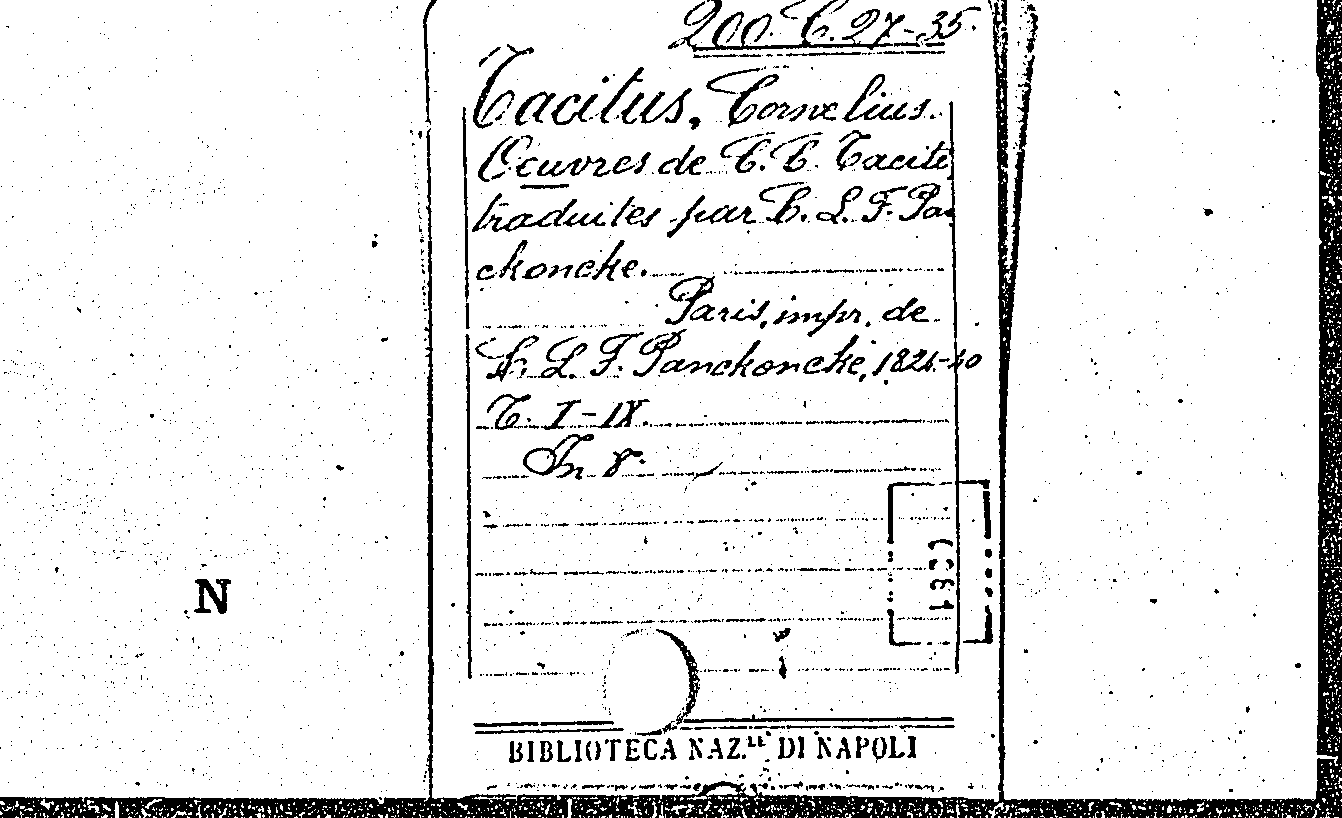 200. C. 27-35.
Tacitus, Cornelius.
Oeuvres de C. C. Tacite
traduites par C. L. F. Pan
ckoncke.
Paris, impr. de
C. L. F. Panckoncke, 
T. I-IX.
In 8.
N
BIBLIOTECA NAZ.LE DI NAPOLI